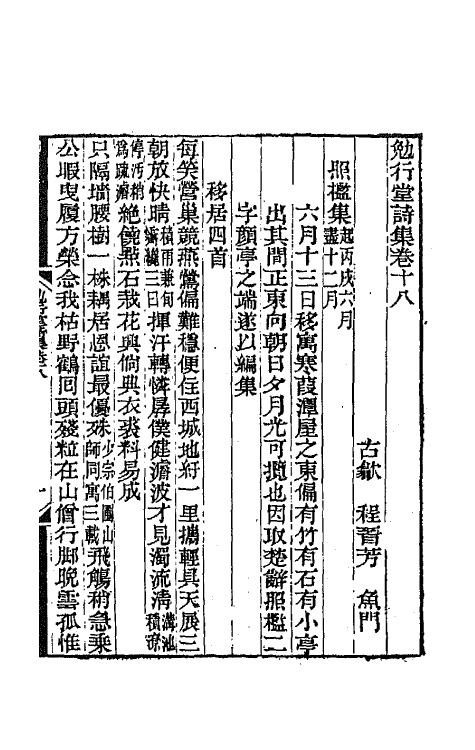 勉行堂詩集卷十八
古歙　程晉芳　魚門
照檻集起丙戌六月盡十二月
六月十三日移寓寒葭潭屋之東偏有竹有石有小亭
出其間正東向朝日夕月尤可攬也因取楚辭照檻二
字顏亭之端遂以編集
移居四首
每笑營巢競燕鶯偏難穩便住西城地紆一里攜輕具天展三
朝放快晴積雨兼旬霽纔三日揮汗轉憐孱僕健澹波才見濁流淸溝池積潦
停汚稍爲疏瀹絶憐㸃石栽花興倘典衣裘料易成
只隔墻腰樹一株耦居恩誼最優殊少宗伯園山師同寓三載飛觴稍急乗
公暇曳履方榮念我枯野鶴囘頭殘粒在山僧行脚晚雲孤惟